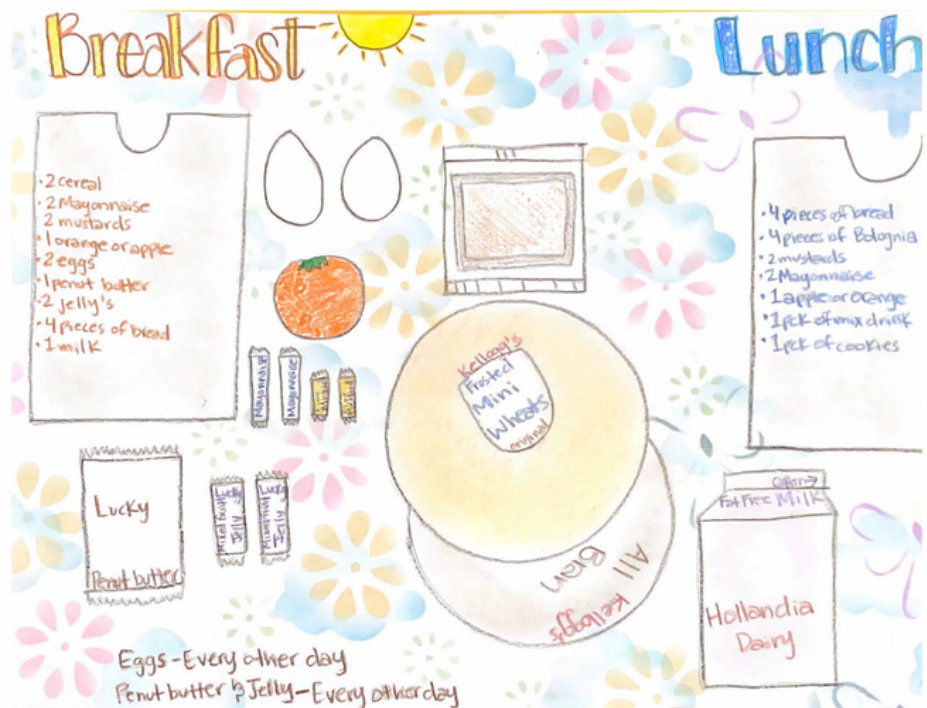 Breakfast
Lunch
• 2 cereal
• 2 Mayonnaise
2 mustards
• 1 orange or apple
• 2 eggs
• 1 penut butter
• 2 jelly's
• 4 pieces of bread
• 1 milk
• 4 pieces of bread
• 4 pieces of Bolognia
• 2 mustards
• 2 Mayonnaise
• 1 apple or orange
• 1 pck of mix drink
• 1 pck of cookies
Mayonnaise
Mayonnaise
Kellogg's
Frosted
Mini
Wheats
original
All
Bran
Kellogg's
Lucky
Penut butter
Mixed fruit
Jelly
Lucky
Mixed fruit
Jelly
Lucky
open→
Fat Free Milk
Hollandia
Dairy
Eggs - Every other day
Penut butter & Jelly - Every other day